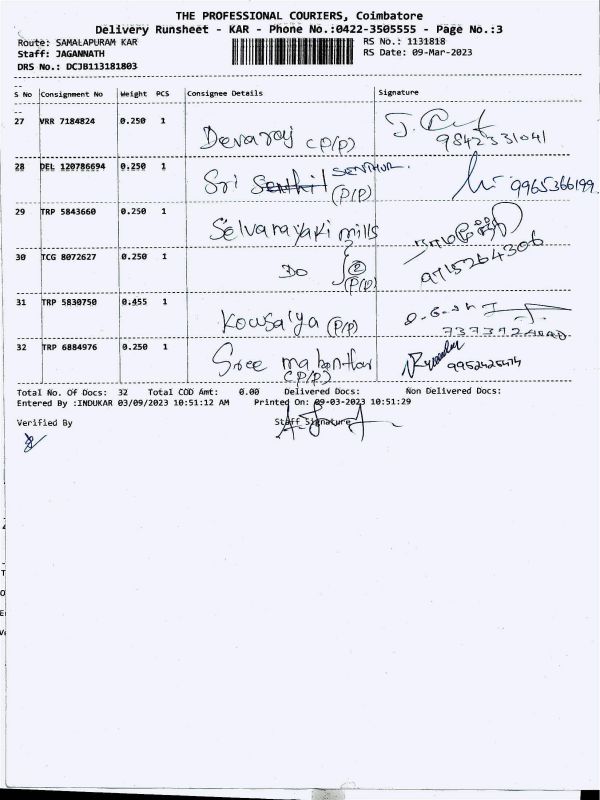 THE PROFESSIONAL COURIERS, Coimbatore
Delivery Runsheet - KAR - Phone No.:0422-3505555 - Page No.:3
Route: SAMALAPURAM KAR
RS No.: 1131818
Staff: JAGANNATH
RS Date: 09-Mar-2023
DRS No.: DCJB113181803
S No Consignment No Weight PCS Consignee Details Signature
27 VRR 7184824 0.250 1
Devaraj (P/P) 9842331041
28 DEL 120786694 0.250 1
Sri Senthil SENTHUR. (P/P) 9965366199
29 TRP 5843660 0.250 1
Selvanayaki mills
30 TCG 8072627 0.250 1
Do 2 (P/P) 9715264306
31 TRP 5830750 0.455 1
Kousalya (P/P)
32 TRP 6884976 0.250 1
Sree (P/P) 9952425474
Total No. Of Docs: 32 Total COD Amt: 0.00 Delivered Docs: Non Delivered Docs:
Entered By :INDUKAR 03/09/2023 10:51:12 AM Printed On: 09-03-2023 10:51:29
Verified By Staff Signature